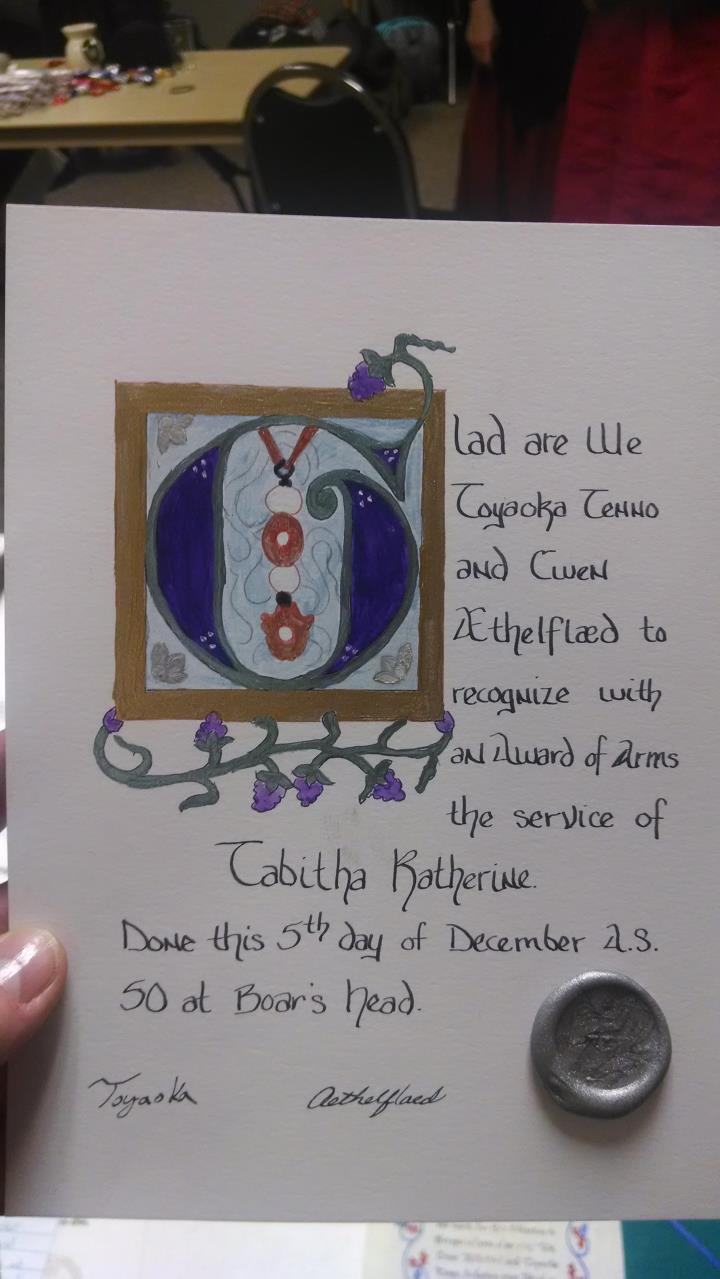 Glad are We
Toyaoka Tenno
and Cwen
Æthelflæd to
recognize with
an Award of Arms
the service of
Tabitha Katherine.
Done this 5th day of December A.S.
50 at Boar's Head.
Toyaoka
Aethelflaed